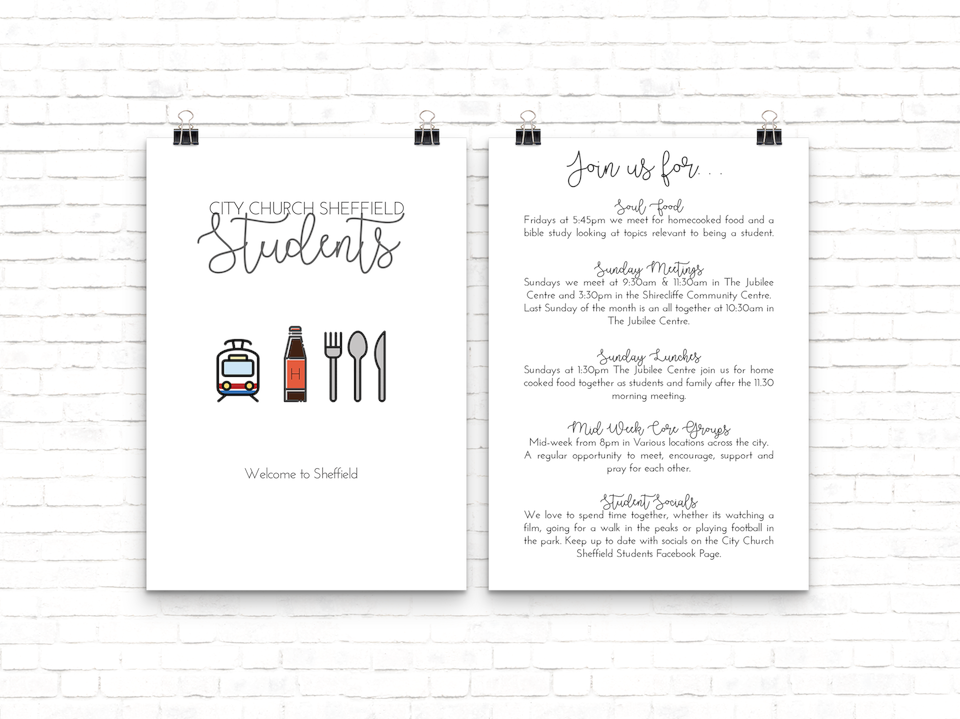 CITY CHURCH SHEFFIELD
Students
H
Welcome to Sheffield
Join us for...
Soul Food
Fridays at 5:45pm we meet for homecooked food and a
bible study looking at topics relevant to being a student.
Sunday Meetings
Sundays we meet at 9:30am & 11:30am in The Jubilee
Centre and 3:30pm in the Shirecliffe Community Centre.
Last Sunday of the month is an all together at 10:30am in
The Jubilee Centre.
Sunday Lunches
Sundays at 1:30pm The Jubilee Centre join us for home
cooked food together as students and family after the 11.30
morning meeting.
Mid Week Core Groups
Mid-week from 8pm in Various locations across the city.
A regular opportunity to meet, encourage, support and
pray for each other.
Student Socials
We love to spend time together, whether its watching a
film, going for a walk in the peaks or playing football in
the park. Keep up to date with socials on the City Church
Sheffield Students Facebook Page.